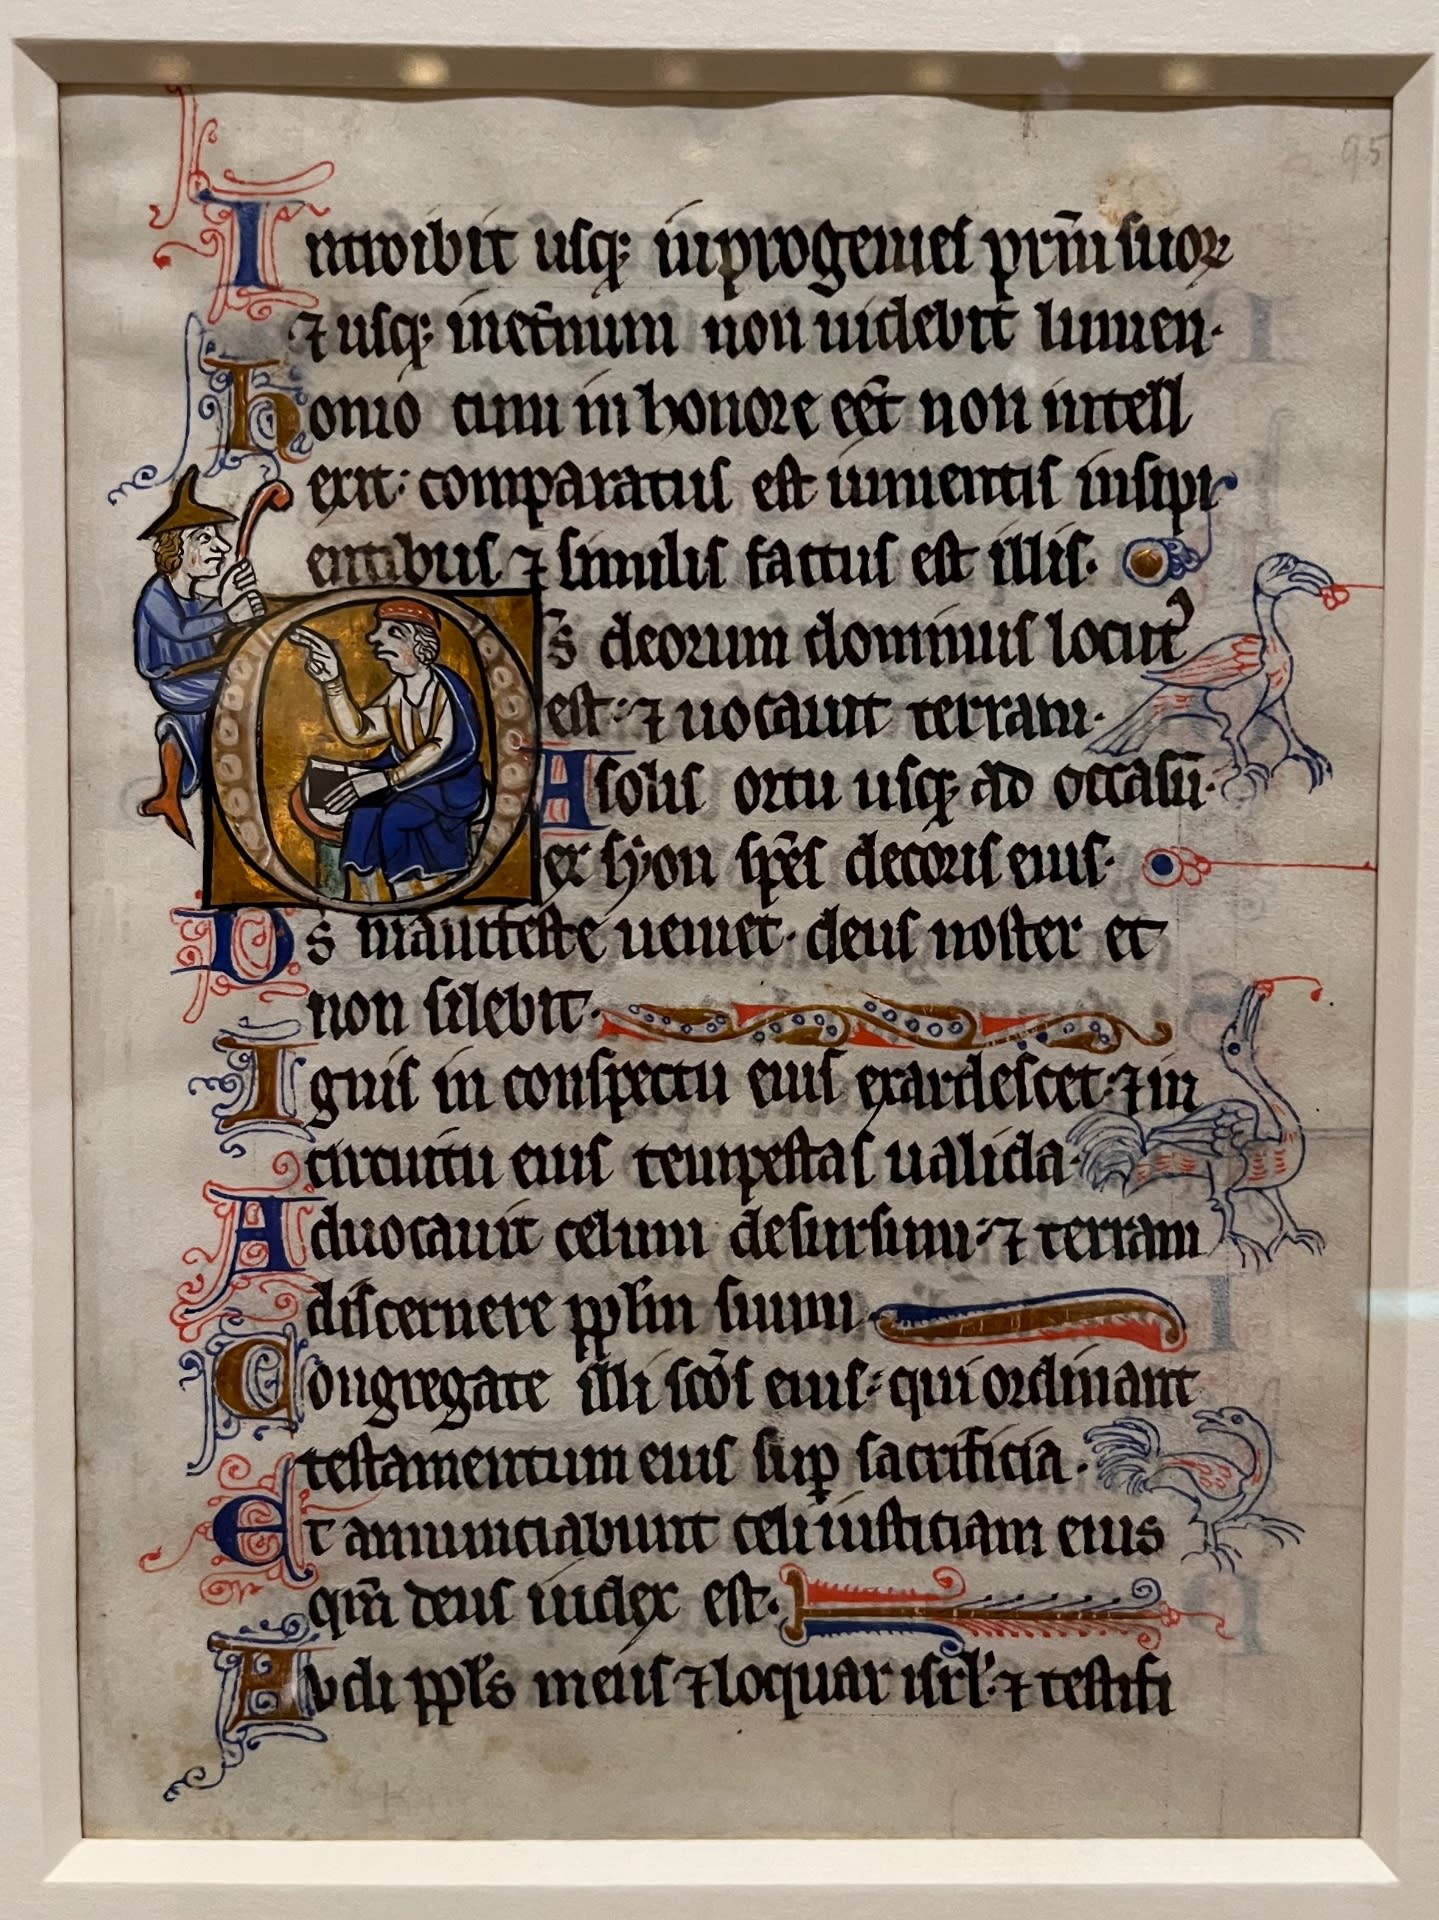 95
Introibit usq; in progenies prm̄ suoꝝ
⁊ usq; inet̄num non uidebit lumen.
homo cum in honore eēt non intell
exit: comparatus est iumentis insipi
entibus ⁊ similis factus est illis.
Ds deorum dominus locut᾽
est: ⁊ uocauit terram.
A solis ortu usq; ad occasū.
ex syon spēs decoris eius.
Ds manifeste ueniet. deus noster et
non silebit.
Ignis in conspectu eius exardescet: ⁊ in
circuitu eius tempestas ualida.
Aduocauit celum desursum: ⁊ terram
discernere pplm suum.
Congregate illi scōs eius: qui ordinant
testamentum eius suꝑ sacrificia.
Et annunciabunt celi iusticiam eius
qm̄ deus iudex est.
Audi ppls meus ⁊ loquar isrl: ⁊ testifi